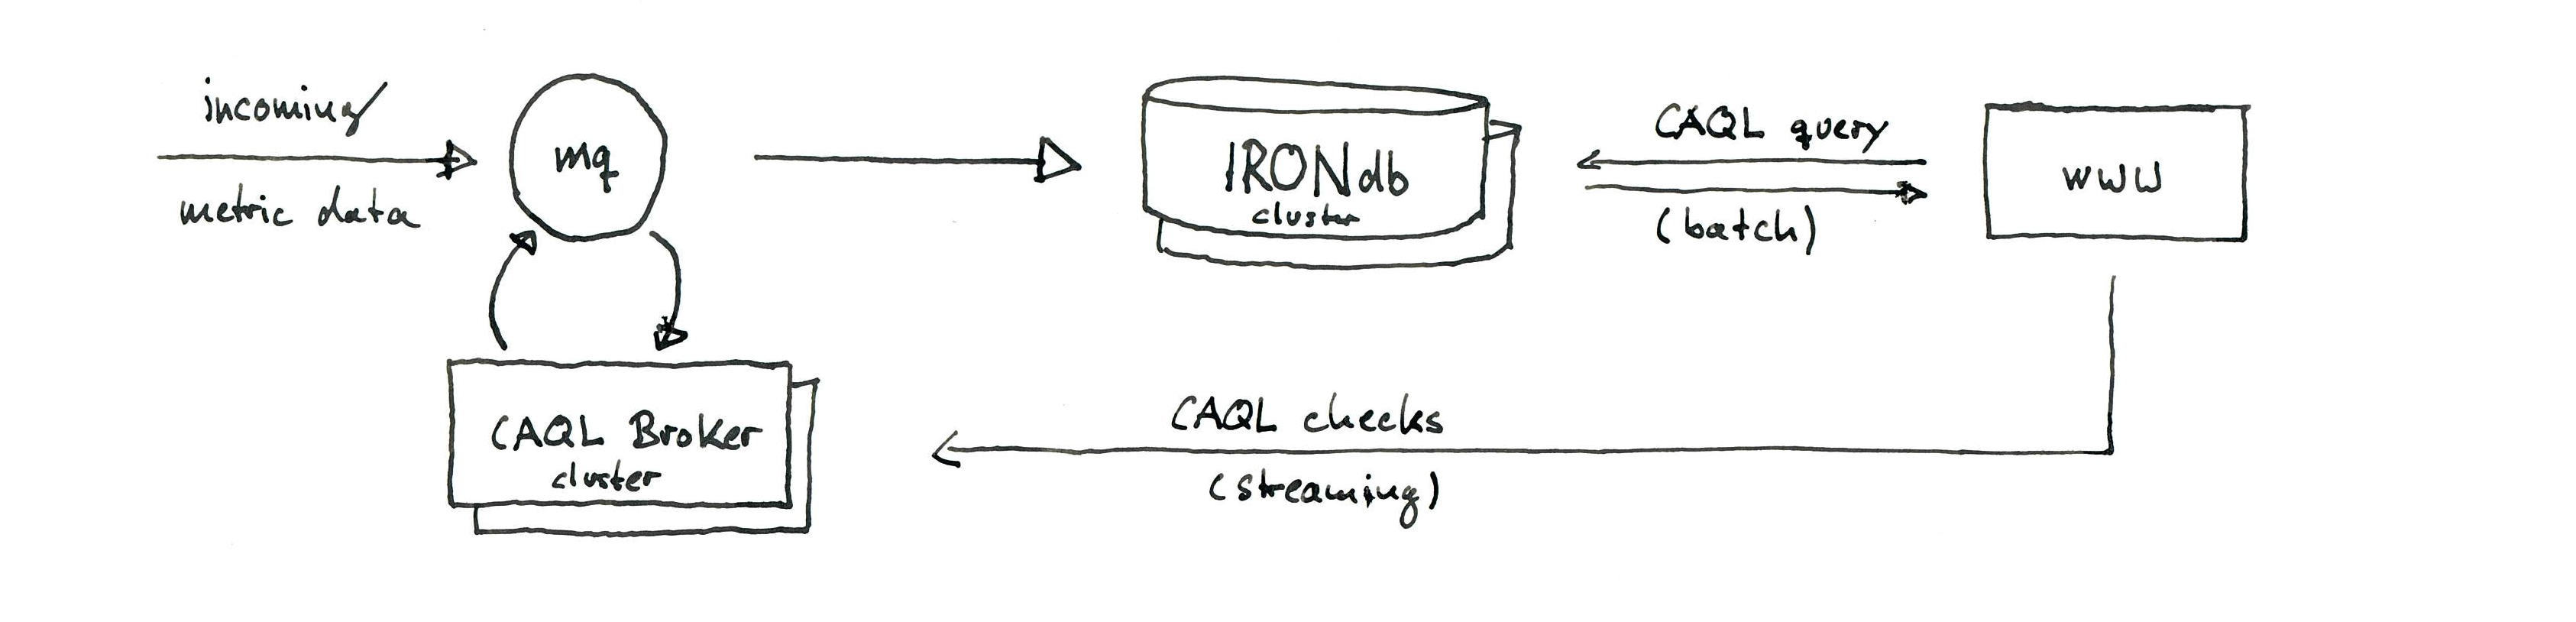 incoming
metric data
mq
IRONdb
cluster
CAQL query
(batch)
WWW
CAQL Broker
cluster
CAQL checks
(streaming)